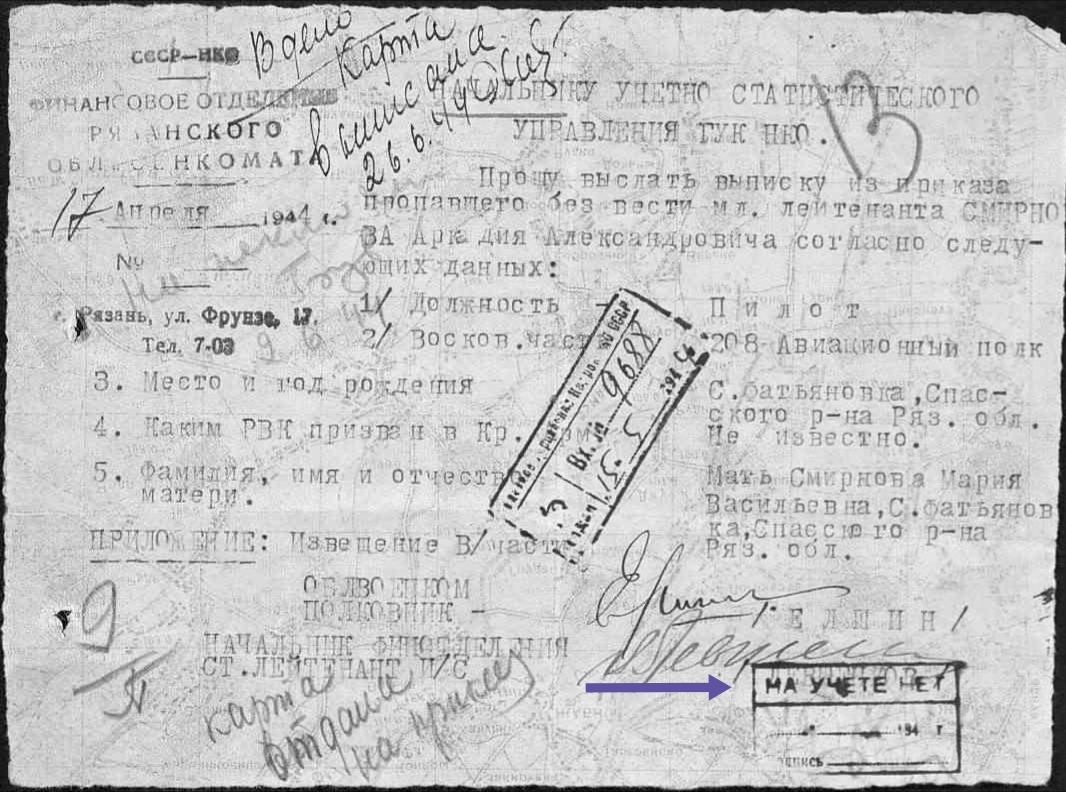 СССР-НКО
ФИНАНСОВОЕ ОТДЕЛЕНИЕ
РЯЗАНСКОГО
ОБЛВОЕНКОМАТА
17 Апреля 1944 г.
№
г. Рязань, ул. Фрунзе, 17.
Тел. 7-03
В дело
Карта
выписана
26.6.44
НАЧАЛЬНИКУ УЧЕТНО СТАТИСТИЧЕСКОГО
УПРАВЛЕНИЯ ГУК НКО.
13
Прошу выслать выписку из приказа
пропавшего без вести мл. лейтенанта СМИРНО
ВА Аркадия Александровича согласно следу-
ющих данных:
1/ Должность - Пилот
2/ Восков.часть 208 Авиационный полк
3. Место и год рождения С.фатьяновка,Спас-
ского р-на Ряз. обл.
4. Каким РВК призван в Кр. Арм Не известно.
5. Фамилия, имя и отчество Мать Смирнова Мария
матери. Васильевна,С.фатьянов
ка,Спасского р-на
Ряз. обл.
Вх. № 9688
15. 5 1944
ПРИЛОЖЕНИЕ: Извещение В/части
ОБЛВОЕНКОМ
ПОЛКОВНИК - /ЕЛШИН/
НАЧАЛЬНИК ФИНОТДЕЛЕНИЯ
СТ.ЛЕЙТЕНАНТ И/С
9
карта
отдана
на
НА УЧЕТЕ НЕТ
194 г